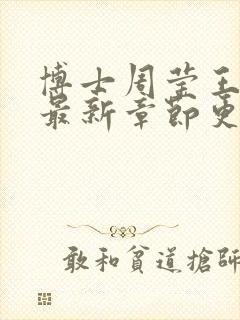 博士周莹王
最新章節更
敢和貧道搶師